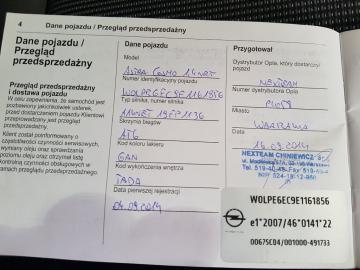 4
Dane pojazdu / Przegląd przedsprzedażny
Dane pojazdu /
Przegląd
przedsprzedażny
Przegląd przedsprzedażny
i dostawa pojazdu
W celu zapewnienia, że samochód jest
przed dostarczeniem pojazdu Klientowi
przeprowadzany jest przegląd
przedsprzedażny.
Klient został poinformowany o
częstotliwości czynności serwisowych,
wymiany oleju oraz sprawdzania
poziomu oleju oraz otrzymał listę
kontrolną czynności obsługowych w
ramach przeglądu przedsprzedażnego.
Dane pojazdu
Model
ASTRA COSMO 1.4 NET
Numer identyfikacyjny pojazdu
WOLPEGEC9E1161856
Typ silnika, numer silnika
Skrzynia biegów
AT6
Kod koloru lakieru
GAN
Kod wykończenia wnętrza
TADA
Data pierwszej rejestracji
04.09.2014
Przygotował
Dystrybutor Opla, który dostarczył
pojazd
NEXTEAM
Numer dystrybutora Opla
PL051
Miasto
WARSZAWA
Data
16.09.2014
NEXTEAM CHINIEWICZ
WOLPEGEC9E1161856
e1*2007/46*0141*22
00675CD4/001000-491733